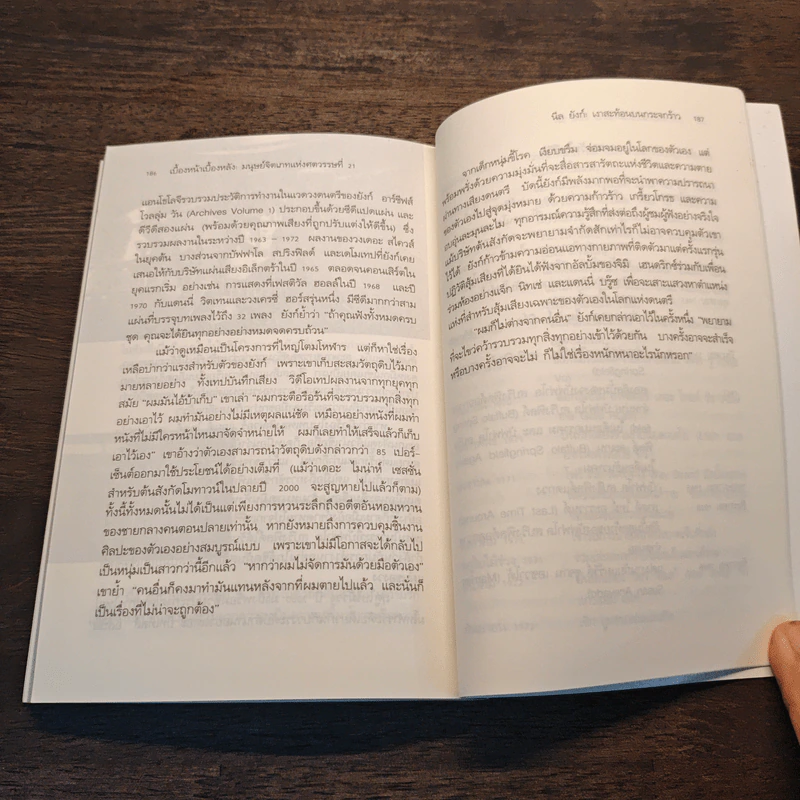 186 เบื้องหน้าเบื้องหลัง: มนุษย์จิตเภทแห่งศตวรรษที่ 21
แอนโธโลจีรวบรวมประวัติการทำงานในแวดวงดนตรีของยังก์ อาร์ไคฟส์
โวลลุ่ม วัน (Archives Volume 1) ประกอบขึ้นด้วยซีดีแปดแผ่น และ
ดีวีดีสองแผ่น (พร้อมด้วยคุณภาพเสียงที่ถูกปรับแต่งให้ดีขึ้น) ซึ่ง
รวบรวมผลงานในระหว่างปี 1963 – 1972 ผลงานของวงเดอะ สไควล์
ในยุคต้น บางส่วนจากบัฟฟาโล สปริงฟิลด์ และเดโมเทปที่ยังก์เคย
เสนอให้กับบริษัทแผ่นเสียงอีเล็กตร้าในปี 1965 ตลอดจนคอนเสิร์ตใน
ยุคแรกเริ่ม อย่างเช่น การแสดงที่เฟสติวัล ฮอลล์ในปี 1968 และปี
1970 กับแดนนี่ วิตเทนและวงเครซี่ ฮอร์สรุ่นหนึ่ง มีซีดีมากกว่าสาม
แผ่นที่บรรจุบทเพลงไว้ถึง 32 เพลง ยังก์ย้ำว่า "ถ้าคุณฟังทั้งหมดครบ
ชุด คุณจะได้ยินทุกอย่างอย่างหมดจดครบถ้วน"
แม้ว่าดูเหมือนเป็นโครงการที่ใหญ่โตมโหฬาร แต่ก็หาใช่เรื่อง
เหลือบ่ากว่าแรงสำหรับตัวของยังก์ เพราะเขาเก็บสะสมวัตถุดิบไว้มาก
มายหลายอย่าง ทั้งเทปบันทึกเสียง วิดีโอเทปผลงานจากทุกยุคทุก
สมัย "ผมมันไอ้บ้าเก็บ" เขาเล่า "ผมกระตือรือร้นที่จะรวบรวมทุกสิ่งทุก
อย่างเอาไว้ ผมทำมันอย่างไม่มีเหตุผลแน่ชัด เหมือนอย่างหนังที่ผมทำ
หนังที่ไม่มีใครหน้าไหนมาจัดจำหน่ายให้ ผมก็เลยทำให้เสร็จแล้วก็เก็บ
เอาไว้เอง" เขาอ้างว่าตัวเองสามารถนำวัตถุดิบดังกล่าวกว่า 85 เปอร์-
เซ็นต์ออกมาใช้ประโยชน์ได้อย่างเต็มที่ (แม้ว่าเดอะ ไมน่าห์ เซสชั่น
สำหรับต้นสังกัดโมทาวน์ในปลายปี 2000 จะสูญหายไปแล้วก็ตาม)
ทั้งนี้ทั้งหมดนั้นไม่ได้เป็นแต่เพียงการหวนระลึกถึงอดีตอันหอมหวาน
ของชายกลางคนตอนปลายเท่านั้น หากยังหมายถึงการควบคุมชิ้นงาน
ศิลปะของตัวเองอย่างสมบูรณ์แบบ เพราะเขาไม่มีโอกาสจะได้กลับไป
เป็นหนุ่มเป็นสาวกว่านี้อีกแล้ว "หากว่าผมไม่จัดการมันด้วยมือตัวเอง"
เขาย้ำ "คนอื่นก็คงมาทำมันแทนหลังจากที่ผมตายไปแล้ว และนั่นก็
เป็นเรื่องที่ไม่น่าจะถูกต้อง"
นีล ยังก์: เงาสะท้อนบนกระจกร้าว 187
จากเด็กหนุ่มขี้โรค เงียบขรึม จ่อมจมอยู่ในโลกของตัวเอง แต่
พร้อมพรั่งด้วยความมุ่งมั่นที่จะสื่อสารสารัตถะแห่งชีวิตและความตาย
ผ่านทางเสียงดนตรี บัดนี้ยังก์มีพลังมากพอที่จะนำพาความปรารถนา
ของตัวเองไปสู่จุดมุ่งหมาย ด้วยความก้าวร้าว เกรี้ยวโกรธ และความ
อบอุ่นละมุนละไม ทุกอารมณ์ความรู้สึกที่ส่งต่อถึงผู้ชมผู้ฟังอย่างจริงใจ
แม้บริษัทต้นสังกัดจะพยายามจำกัดสักเท่าไรก็ไม่อาจควบคุมตัวเขา
ไว้ได้ ยังก์ก้าวข้ามความอ่อนแอทางกายภาพที่ติดตัวมาแต่ครั้งแรกรุ่น
ปฏิวัติสุ้มเสียงที่ได้ยินได้ฟังจากอัลบั้มของจิมิ เฮนดริกซ์ร่วมกับเพื่อน
ร่วมห้องอย่างแจ็ก นิทเช่ และแดนนี่ บรู๊ซ เพื่อจะเสาะแสวงหาตำแหน่
แห่งที่สำหรับสุ้มเสียงเฉพาะของตัวเองในโลกแห่งดนตรี
"ผมก็ไม่ต่างจากคนอื่น" ยังก์เคยกล่าวเอาไว้ในครั้งหนึ่ง "พยายาม
ที่จะไขว่คว้ารวบรวมทุกสิ่งทุกอย่างเข้าไว้ด้วยกัน บางครั้งอาจจะสำเร็จ
หรือบางครั้งอาจจะไม่ ก็ไม่ใช่เรื่องหนักหนาอะไรนักหรอก"